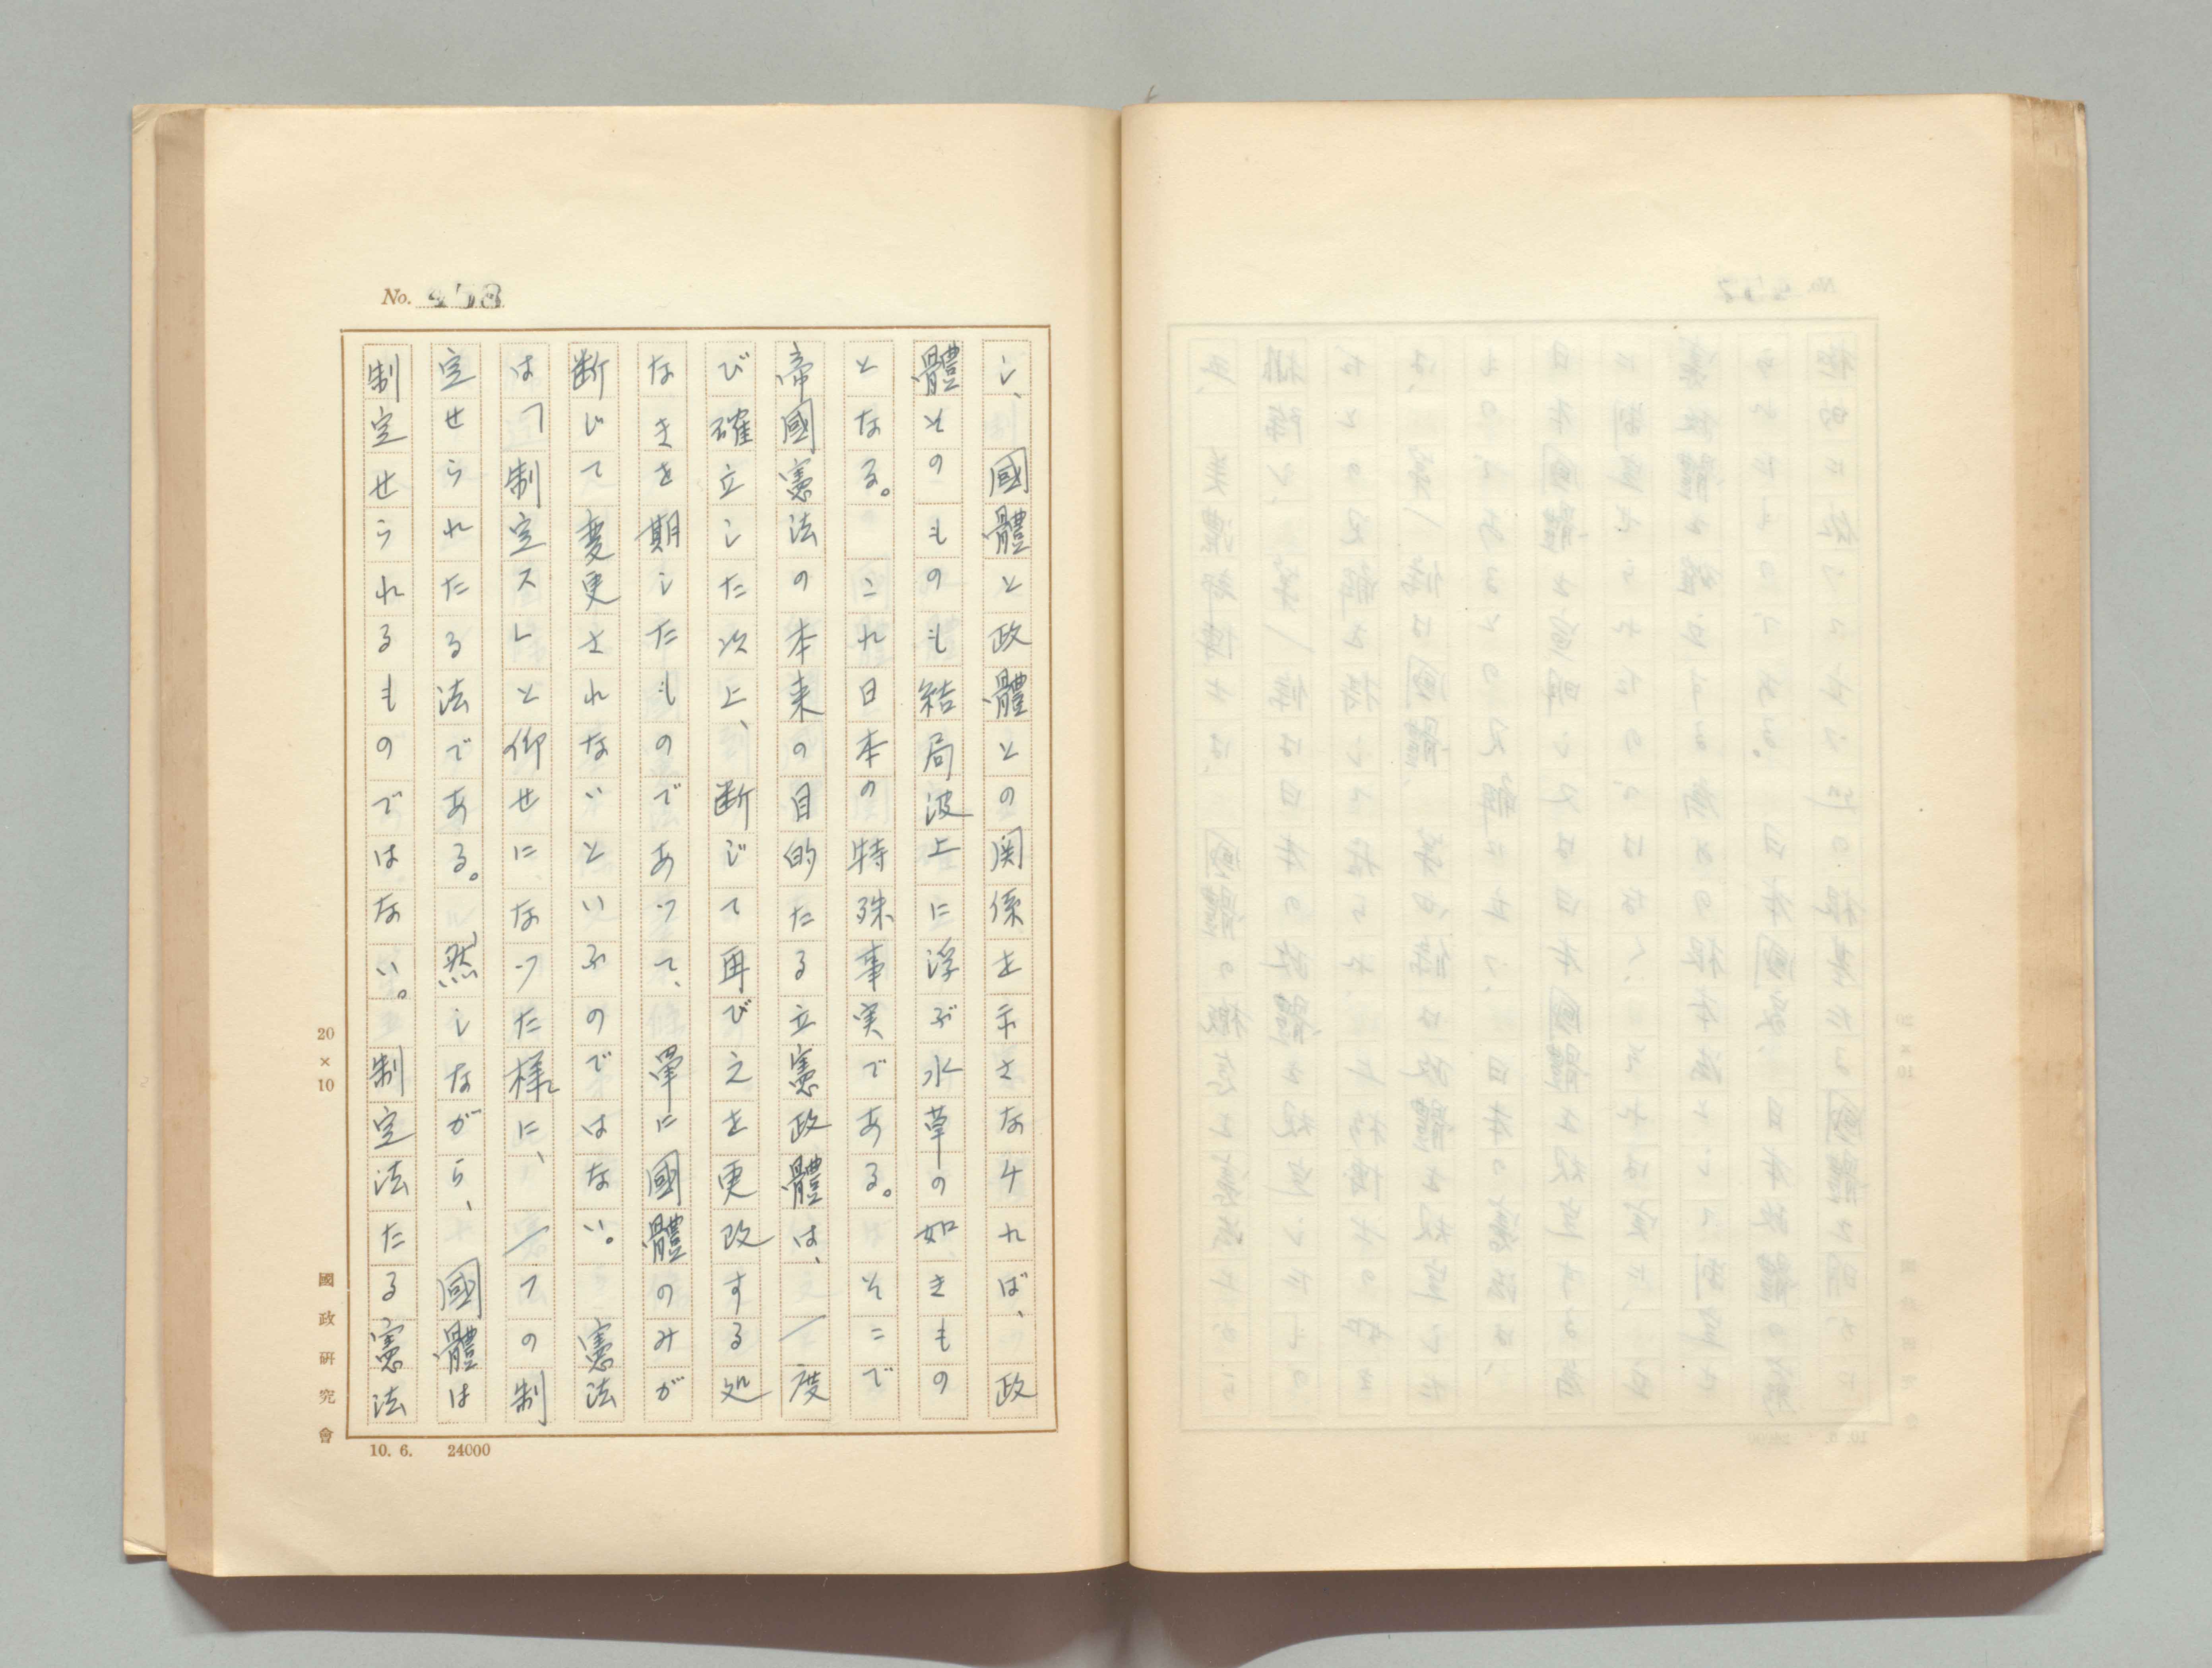 No. 458
し、國體と政體との関係を示さなければ、政
體そのものも結局波上に浮ぶ水草の如きもの
となる。これ日本の特殊事実である。そこで
帝國憲法の本来の目的たる立憲政體は、一度
び確立した以上、断じて再び之を更改する処
なきを期したものであつて、單に國體のみが
断じて変更されないといふのではない。憲法
は「制定スレと仰せになつた様に、一つの制
定せられたる法である。然しながら、國體は
制定せられるものではない。制定法たる憲法
20×10
國政研究會
10. 6. 24000